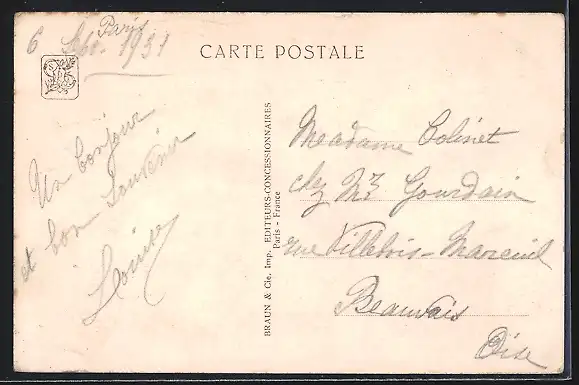 Paris
6 Sept. 1931
CARTE POSTALE
Un bonjour
et bon Souvenir
BRAUN & Cie, Imp. EDITEURS-CONCESSIONNAIRES
Paris - France
Madame Bolinet
chez Mr Gourdain
rue Villebois-Mareuil
Beauvais
Oise